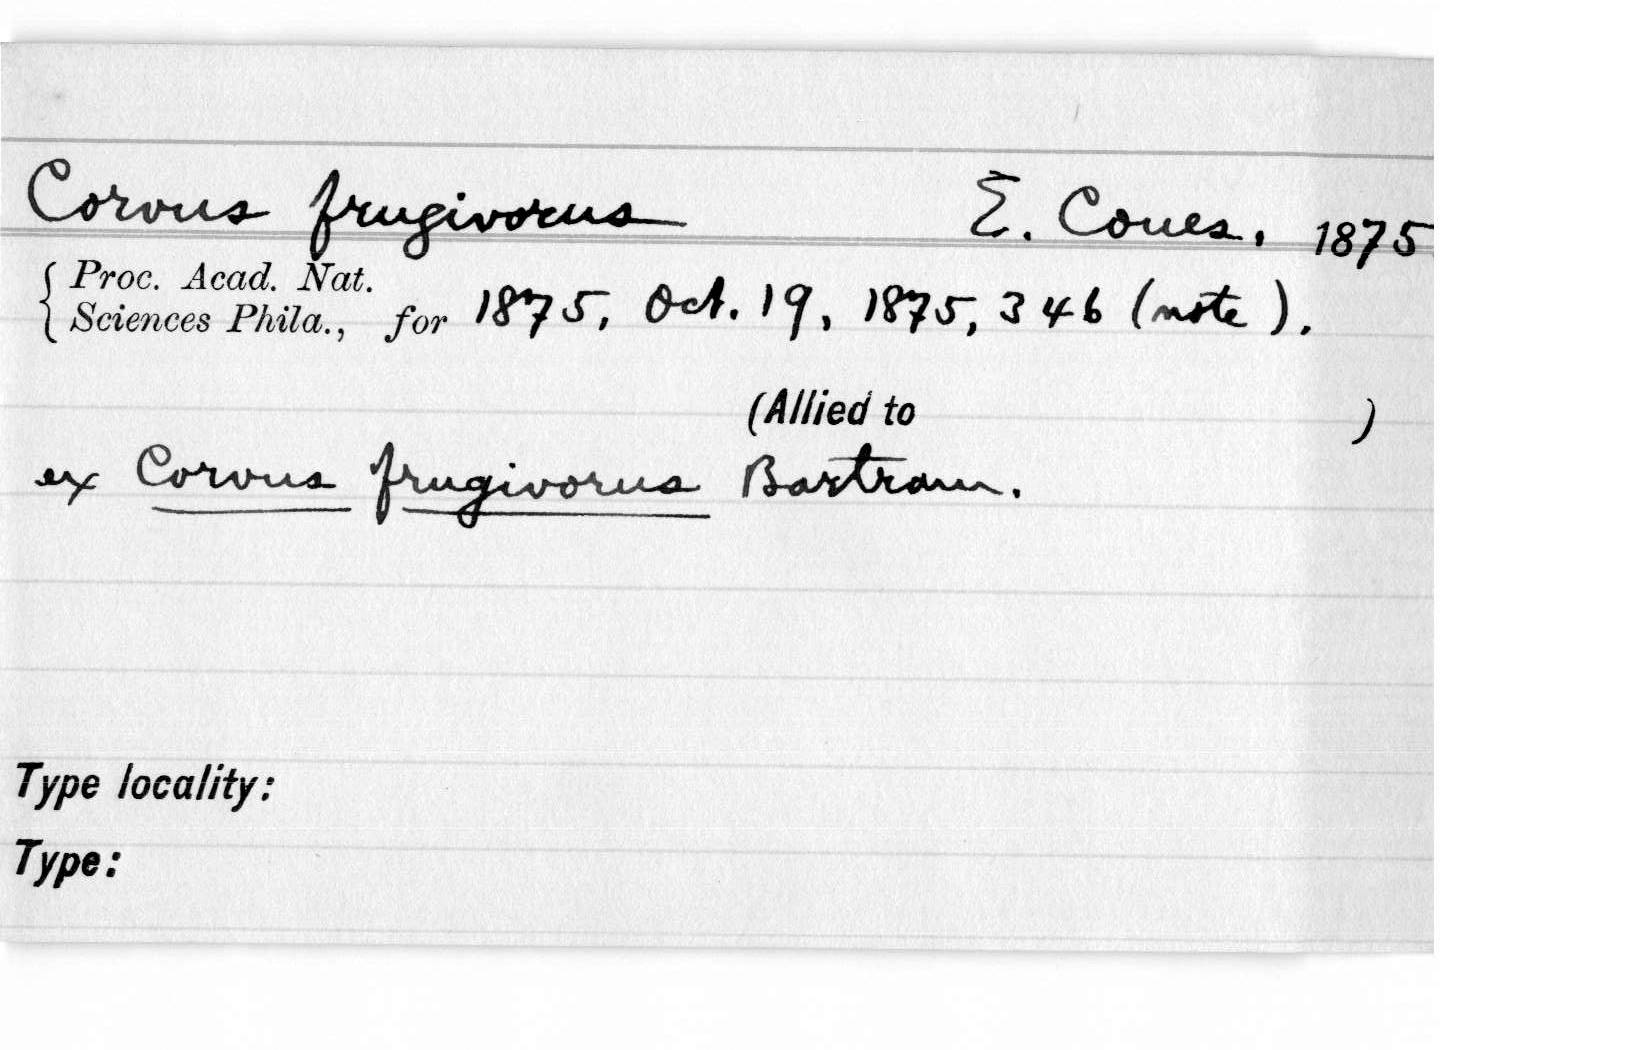 Corvus frugivorus E. Coues, 1875
{ Proc. Acad. Nat.
Sciences Phila., for 1875, Oct. 19, 1875, 346 (note).
(Allied to )
ex Corvus frugivorus Bartram.
Type locality:
Type: